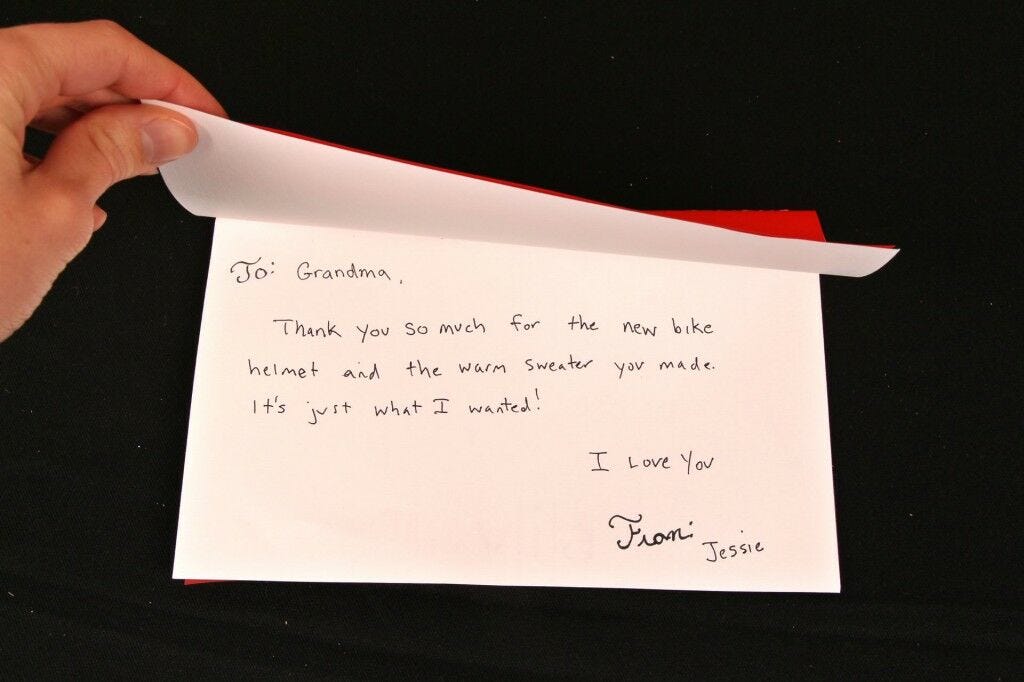 To: Grandma,
Thank you so much for the new bike
helmet and the warm sweater you made.
It's just what I wanted!
I Love You
From: Jessie